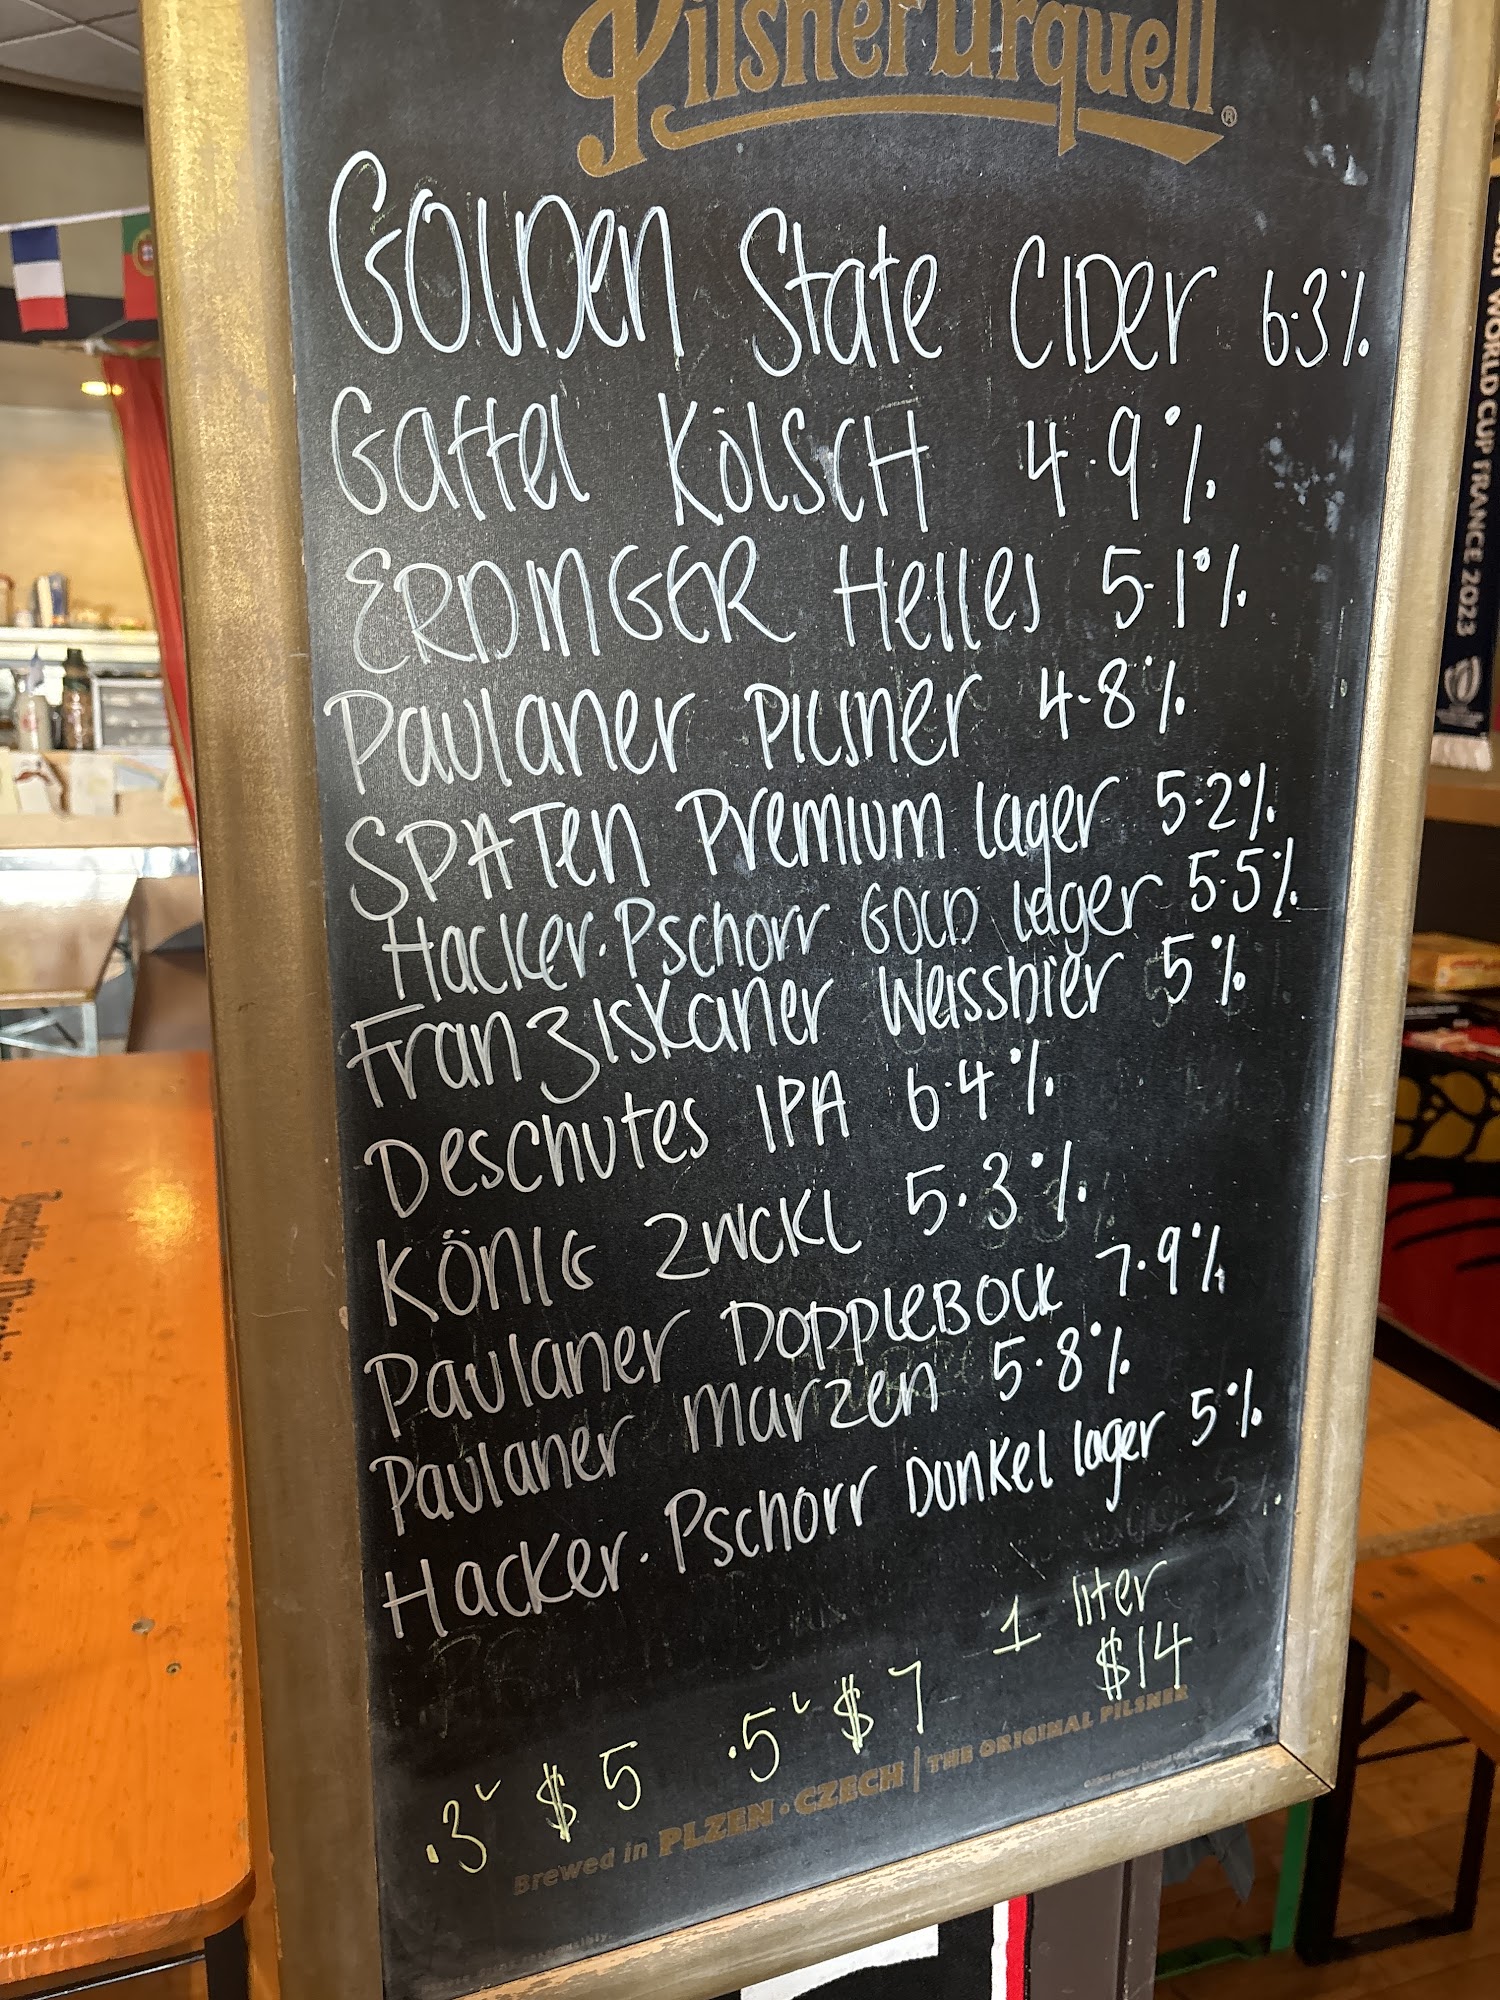 Pilsner Urquell®
GOLDen State CIDer 6.3%
Gaffel KÖLSCH 4.9%
ERDINGER Helles 5.1%
Paulaner PILSner 4.8%
SPATEN Premium lager 5.2%
Hacker-Pschorr GOLD lager 5.5%
Franziskaner Weissbier 5%
Deschutes IPA 6.4%
KÖNIG ZWCKL 5.3%
Paulaner DOPPLEBOCK 7.9%
Paulaner Marzen 5.8%
Hacker-Pschorr Dunkel lager 5%
1 liter
$14
.5L $7
.3L $5
Brewed in PLZEN • CZECH | THE ORIGINAL PILSNER
WORLD CUP FRANCE 2023